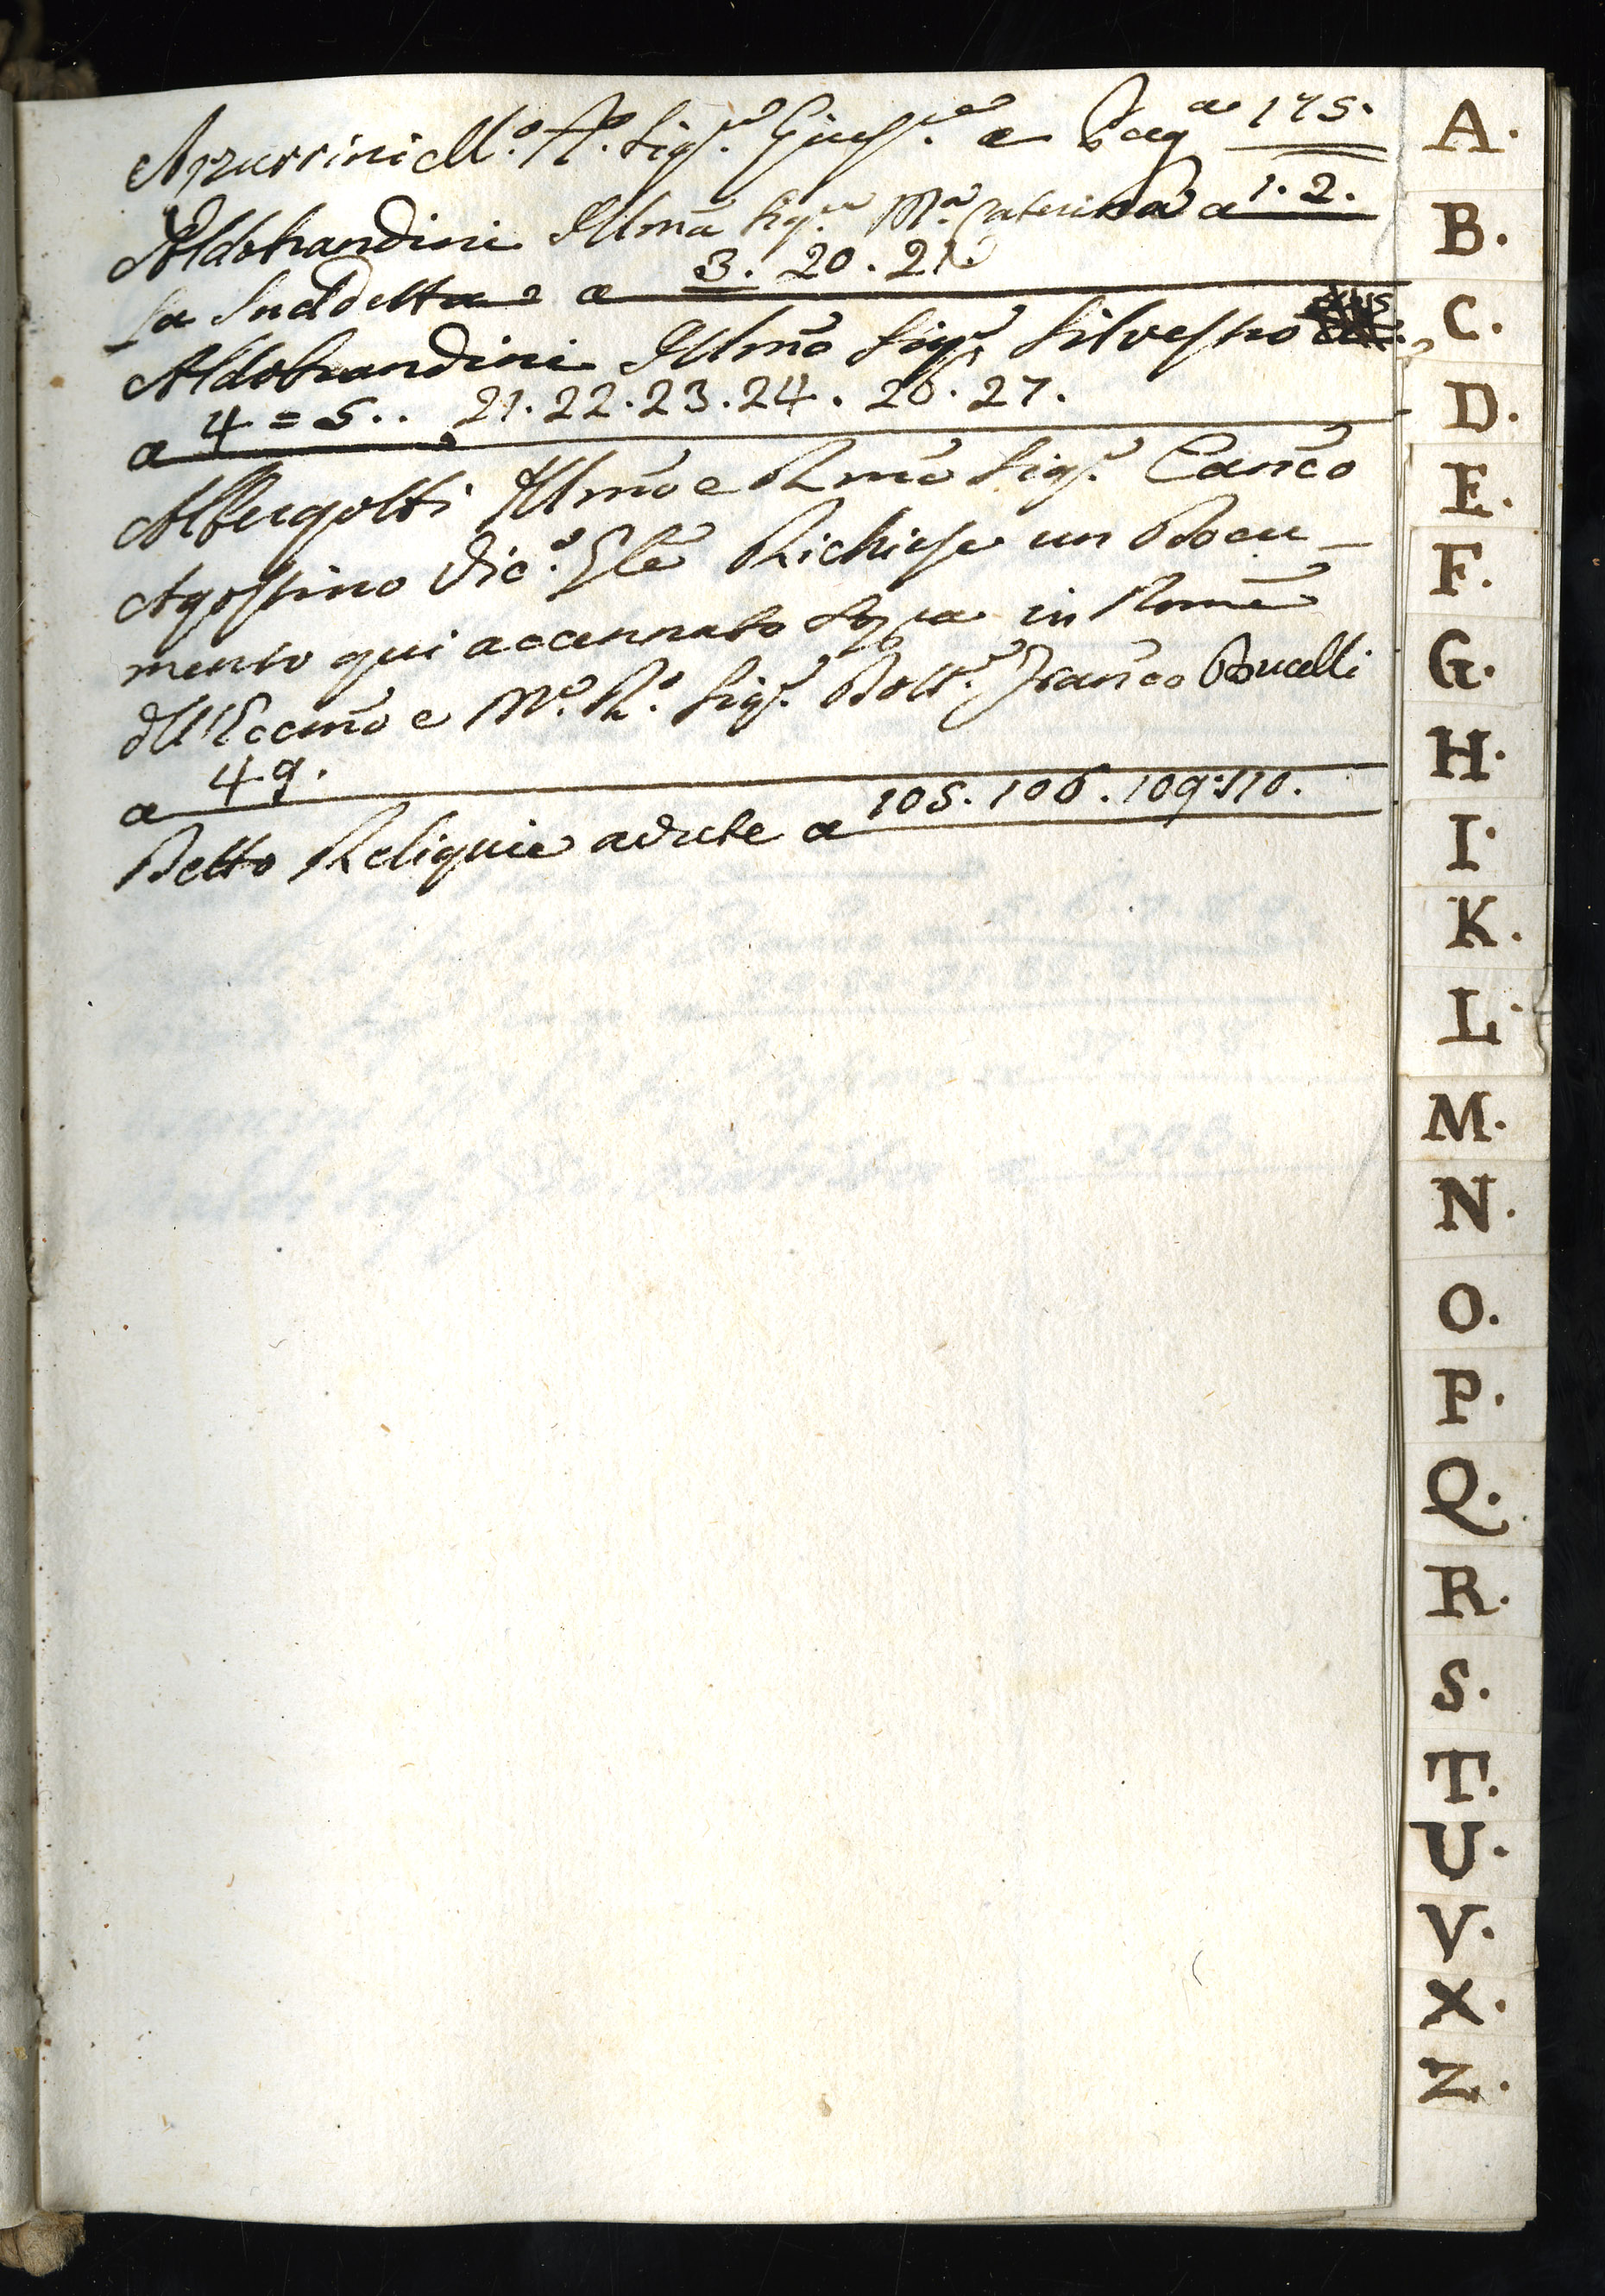 Azzurrini M.º A.º Sig.ʳ Gius.ᵉ a Pag.ª 175.
Aldobrandini Illmã Sig.ʳᵃ M.ª Caterina a 1. 2.
La Suddetta a 3. 20. 21
Aldobrandini Illmõ Sig.ʳ Silvestro
a 4 = 5.. 21. 22. 23. 24. 26. 27.
Albergotti Illmõ e Rmõ Sig.ʳ Canco
Agostino Vic.º Gle Richiese un Docu-
mento qui accennato sopra in Nome
dell'Eccmõ e M.º R.º Sig.ʳ Dott.ʳ Franco Bucelli
a 49.
Detto Reliquie avute a 105. 106. 109. 110.
A.
B.
C.
D.
E.
F.
G.
H.
I.
K.
L.
M.
N.
O.
P.
Q.
R.
S.
T.
U.
V.
X.
Z.